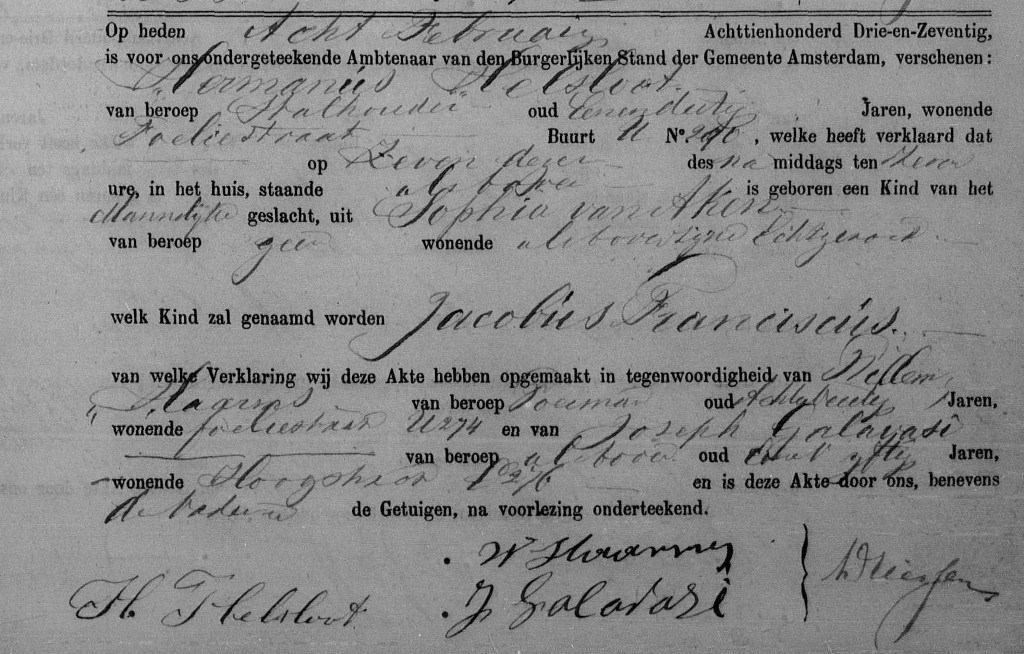 Op heden Acht Februarij Achttienhonderd Drie-en-Zeventig,
is voor ons ondergeteekende Ambtenaar van den Burgerlijken Stand der Gemeente Amsterdam, verschenen:
Hermanus Helsloot
van beroep Stalhouder oud Jaren, wonende
Foeliestraat Buurt U Nº. , welke heeft verklaard dat
op Zeven dezer des na middags ten
ure, in het huis, staande als boven is geboren een Kind van het
Mannelijke geslacht, uit Sophia van Aken
van beroep geen wonende als boven zijne Echtgenoot
welk Kind zal genaamd worden Jacobus Franciscus.
van welke Verklaring wij deze Akte hebben opgemaakt in tegenwoordigheid van Willem
van beroep oud Jaren,
wonende Foeliestraat U 274 en van Joseph Galavasi
van beroep als boven oud Jaren,
wonende en is deze Akte door ons, benevens
de Getuigen, na voorlezing onderteekend.
J Galavazi
H. Helsloot